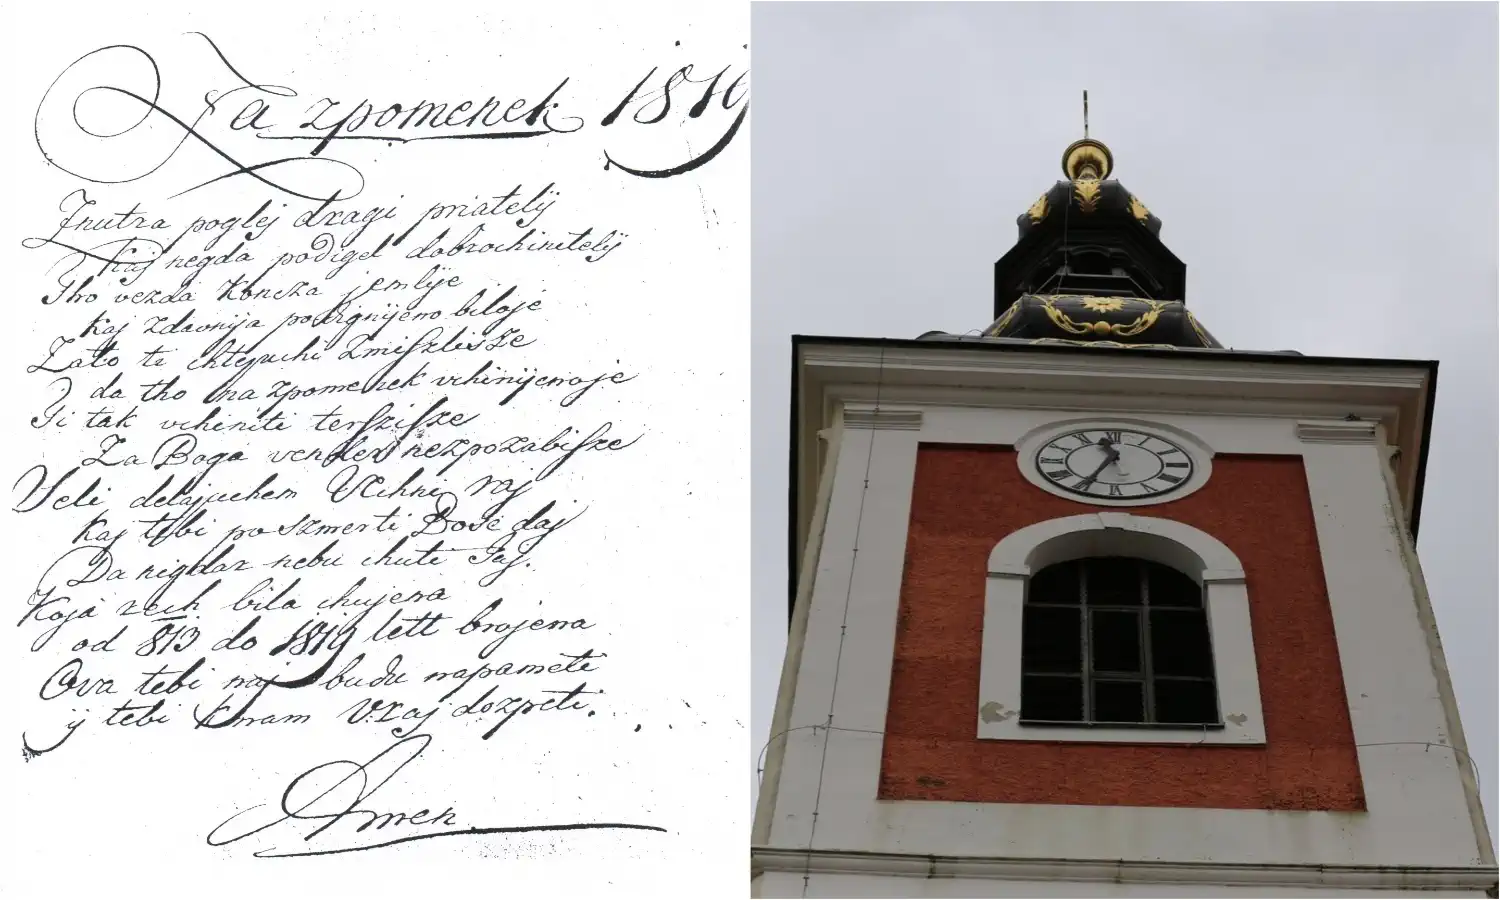 Za zpomenek 1819
Znutra poglej dragi priatelij
Kaj negda podigel dobrochinitelij
Tho vezda Koncza jemlije
Kaj zdavnija podignijeno biloje
Zato ti chtejuchi Zmiszliſze
I da tho na zpomenek vchinijenoje
Ti tak vchiniti terſziſze
Za Boga vendar nezpozabiſze
Veli delajuchem Vchini raj
Kaj tebi po Szmerti Bose daj
Da nigdar nebu chuti Jaj.
Koja rech bila chujena
od 813 do 1819 lett brojena
Ova tebi naj budu napameti
ij tebi hram Vraj dozpeti.
Amen
XII